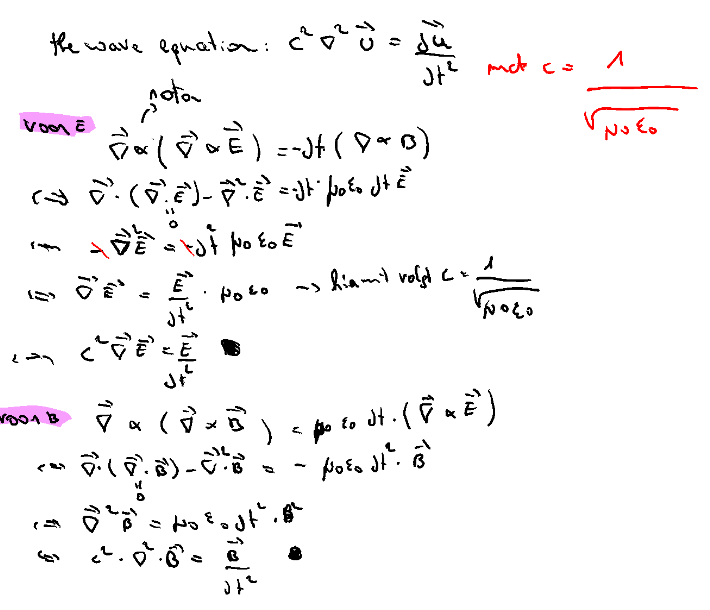 the wave equation: c² ∇² u⃗ = ∂u⃗/∂t² met c = 1/√(μ₀ε₀)
rotor
voor E
∇⃗ × (∇⃗ × E⃗) = -∂t (∇ × B)
⟺ ∇⃗ · (∇⃗ · E⃗) - ∇⃗² · E⃗ = -∂t · μ₀ε₀ ∂t E⃗
= 0
⟺ -∇⃗² E⃗ = -∂t² μ₀ε₀ E⃗
⟺ ∇⃗ E⃗ = E⃗/∂t² · μ₀ε₀ → hieruit volgt c = 1/√(μ₀ε₀)
⟺ c² ∇⃗ E⃗ = E⃗/∂t²
voor B
∇⃗ × (∇⃗ × B⃗) = μ₀ε₀ ∂t · (∇⃗ × E⃗)
⟺ ∇⃗ · (∇⃗ · B⃗) - ∇⃗² · B⃗ = - μ₀ε₀ ∂t² · B⃗
= 0
⟺ ∇⃗² B⃗ = μ₀ε₀ ∂t² · B²
⟺ c² · ∇² · B⃗ = B⃗/∂t²